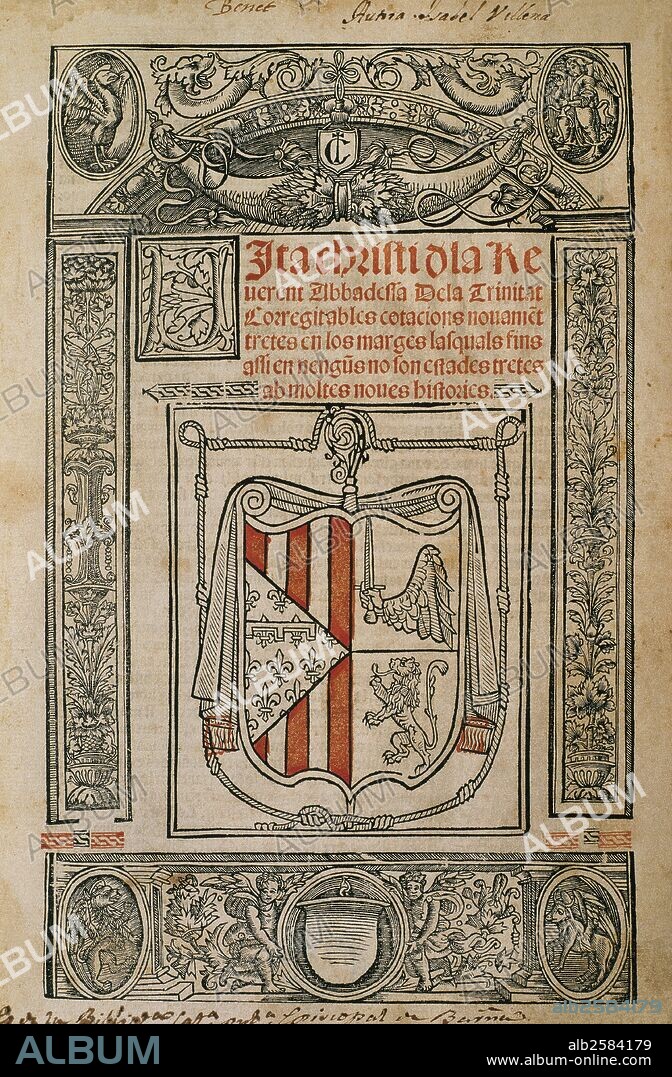 Benet Autora Isabel Villena
C
Vita christi d'la Re
uerent Abbadessa Dela Trinitat
Corregit ab les cotacions nouamēt
tretes en los marges lasquals fins
assi en nengūs no son estades tretes
ab moltes noues histories.
Episcopal
alb2584179
ALBUM
alb2584179
www.album-online.com